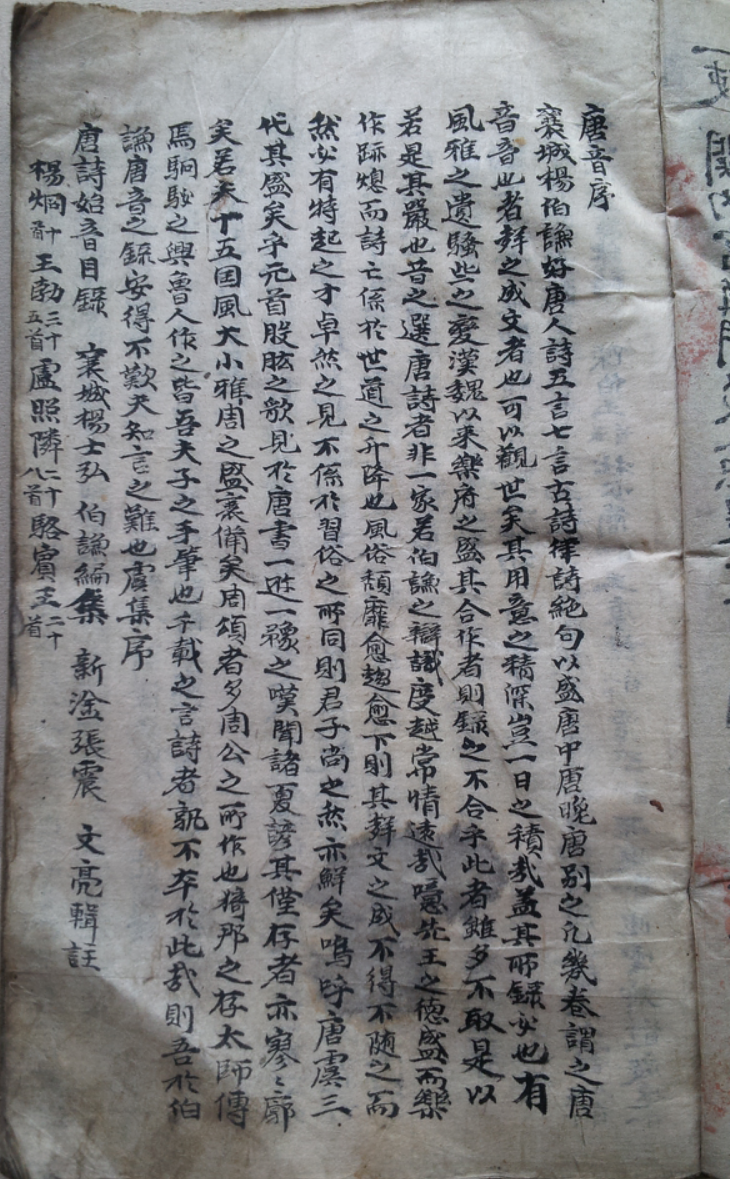 唐音序
襄城楊伯謙好唐人詩五言七言古詩律詩絕句以盛唐中唐晚唐別之凡幾卷謂之唐
音音也者聲之成文者也可以觀世矣其用意之精深豈一日之積哉蓋其所錄必也有
風雅之遺騷些之變漢魏以來樂府之盛其合作者則錄之不合乎此者雖多不取是以
若是其嚴也昔之選唐詩者非一家若伯謙之辯識度越常情遠哉噫先王之德盛而樂
作跡熄而詩亡係於世道之升降也風俗頹靡愈趨愈下則其聲文之成不得不隨之而
然必有特起之才卓然之見不係於習俗之所同則君子尚之然亦鮮矣嗚呼唐虞三
代其盛矣乎元首股肱之歌見於唐書一遊一豫之嘆聞諸夏諺其僅存者亦寥〻廓
矣若夫十五国風大小雅周之盛衰備矣周頌者多周公之所作也猗那之存太師傳
焉駉駜之興魯人作之皆吾夫子之手筆也千載之言詩者孰不本於此哉則吾於伯
謙唐音之錄安得不歎夫知言之難也虞集序
唐詩始音目錄 襄城楊士弘 伯謙編集 新淦張震 文亮輯註
楊炯十首 王勃三十五首 盧照隣二十八首 駱賓王二十首